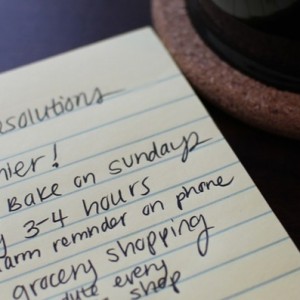 esolutions
hier!
Bake on sundays
y 3-4 hours
larm reminder on phone
grocery shopping
every
shop